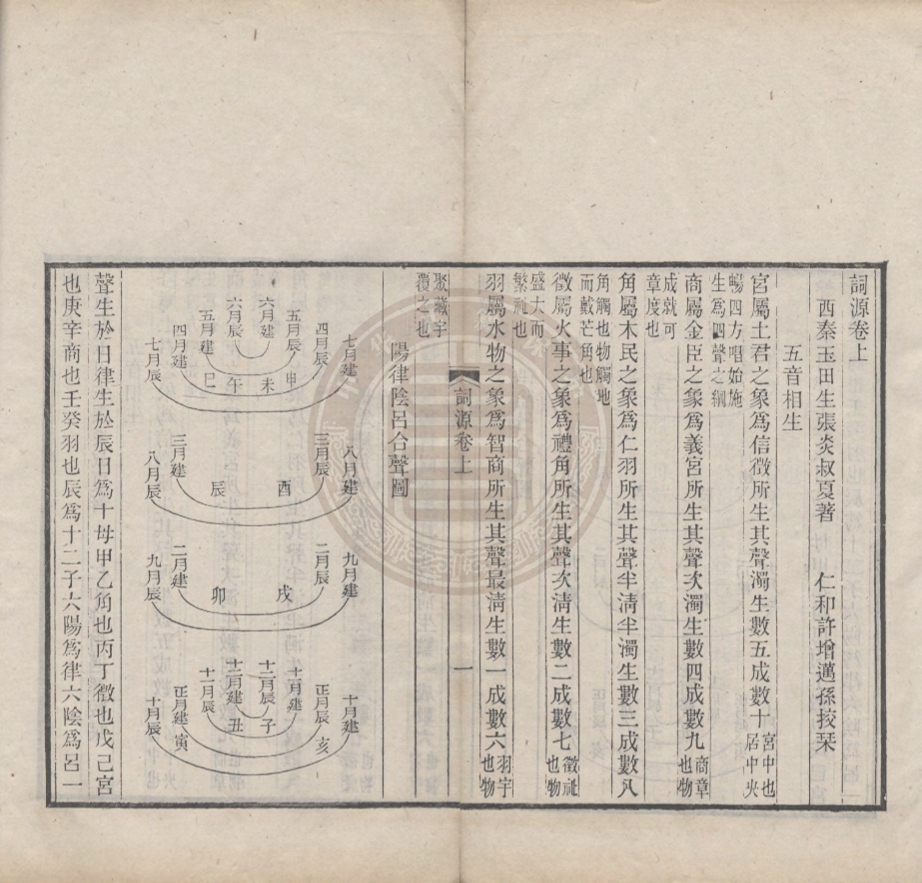 詞源卷上
西秦玉田生張炎叔夏著　仁和許增邁孫挍栞
五音相生
宮屬土君之象爲信徵所生其聲濁生數五成數十宮中也居中央
暢四方唱始施生爲四聲之綱
商屬金臣之象爲義宮所生其聲次濁生數四成數九商章也物
成就可章度也
角屬木民之象爲仁羽所生其聲半清半濁生數三成數八
角觸也物觸地而戴芒角也
徵屬火事之象爲禮角所生其聲次清生數二成數七徵祉也物
盛大而繁祉也
羽屬水物之象爲智商所生其聲最清生數一成數六羽宇也物
詞源卷上
一
聚藏宇覆之也
陽律陰呂合聲圖
七月建
四月辰
五月辰
六月建
六月辰
五月建
四月建
七月辰
申
未
午
巳
八月建
三月辰
三月建
八月辰
酉
辰
九月建
二月辰
二月建
九月辰
戌
卯
十月建
正月辰
十一月建
十二月辰
十二月建
十一月辰
正月建
十月辰
亥
子
丑
寅
聲生於日律生於辰日爲十母甲乙角也丙丁徵也戊己宮
也庚辛商也壬癸羽也辰爲十二子六陽爲律六陰爲呂一